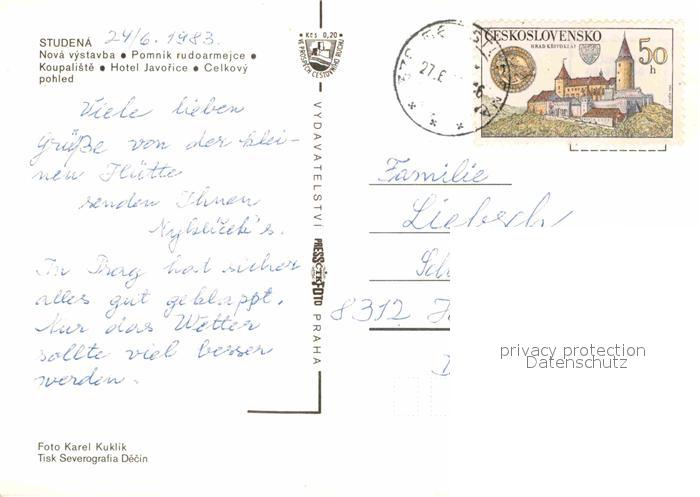 STUDENÁ 24/6. 1983.
Nová výstavba • Pomník rudoarmejce •
Koupaliště • Hotel Javořice • Celkový
pohled
Viele lieben
Grüße von der klei-
nen Hütte
senden Ihnen
In Prag hat sicher
alles gut geklappt.
Nur das Wetter
sollte viel besser
werden.
Foto Karel Kuklík
Tisk Severografia Děčín
Kčs 0,20
VYDAVATELSTVÍ PRESSFOTO PRAHA
ČESKOSLOVENSKO
HRAD KŘIVOKLÁT
50
h
27.6
Familie
8312
privacy protection
Datenschutz